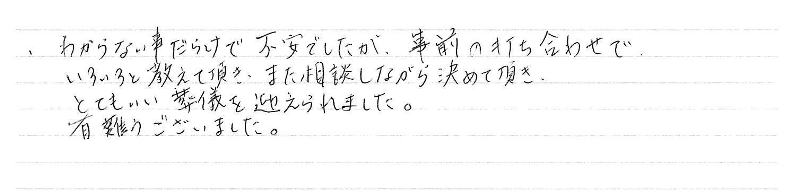 、わからない事だらけで不安でしたが、事前の打ち合わせで、
いろいろと教えて頂き、また相談しながら決めて頂き、
とてもいい葬儀を迎えられました。
有難うございました。